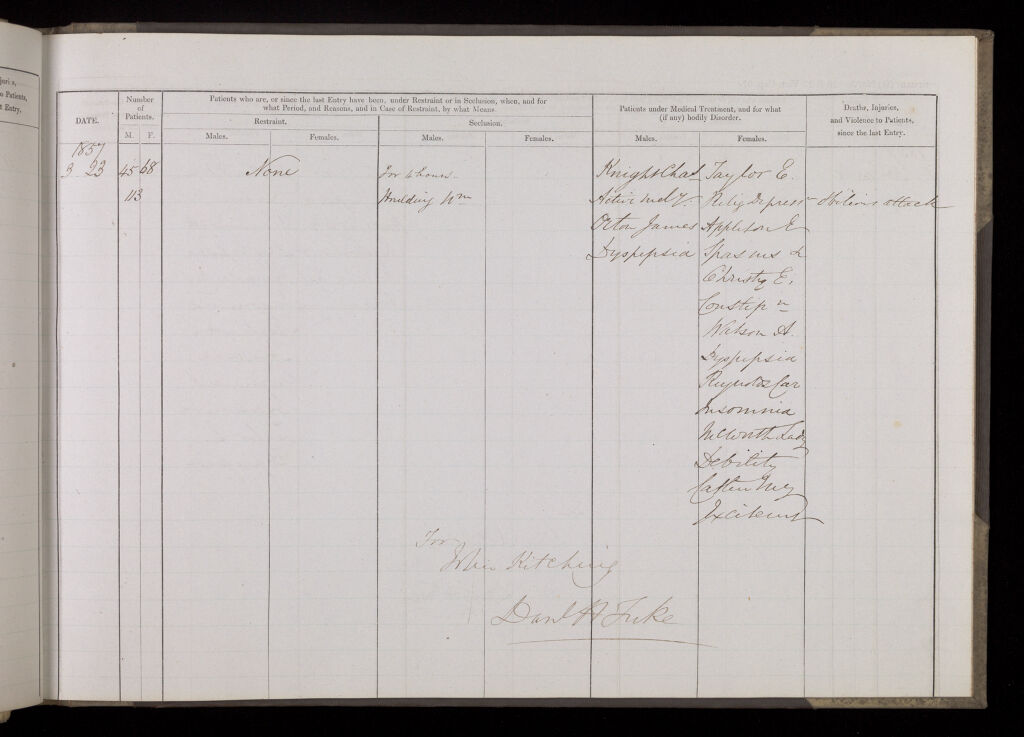 juries,
o Patients,
t Entry.
DATE.
Number
of
Patients.
M. F.
Patients who are, or since the last Entry have been, under Restraint or in Seclusion, when, and for
what Period, and Reasons, and in Case of Restraint, by what Means.
Restraint.
Seclusion.
Males.
Females.
Males.
Females.
Patients under Medical Treatment, and for what
(if any) bodily Disorder.
Males.
Females.
Deaths, Injuries,
and Violence to Patients,
since the last Entry.
1857
3 23 45 68
113
None
For 4 hours
Wm
Knight Chas
Activ Mel
Orton James
Dyspepsia
Taylor E.
Relig Depress & bilious attack
Appleton E
Spasms &
Christy E.
Constip n
Watson A.
Dyspepsia
Reynolds Car
Insomnia
Lady
Debility
My
Excitemt
For
John Kitching
Danl H Tuke